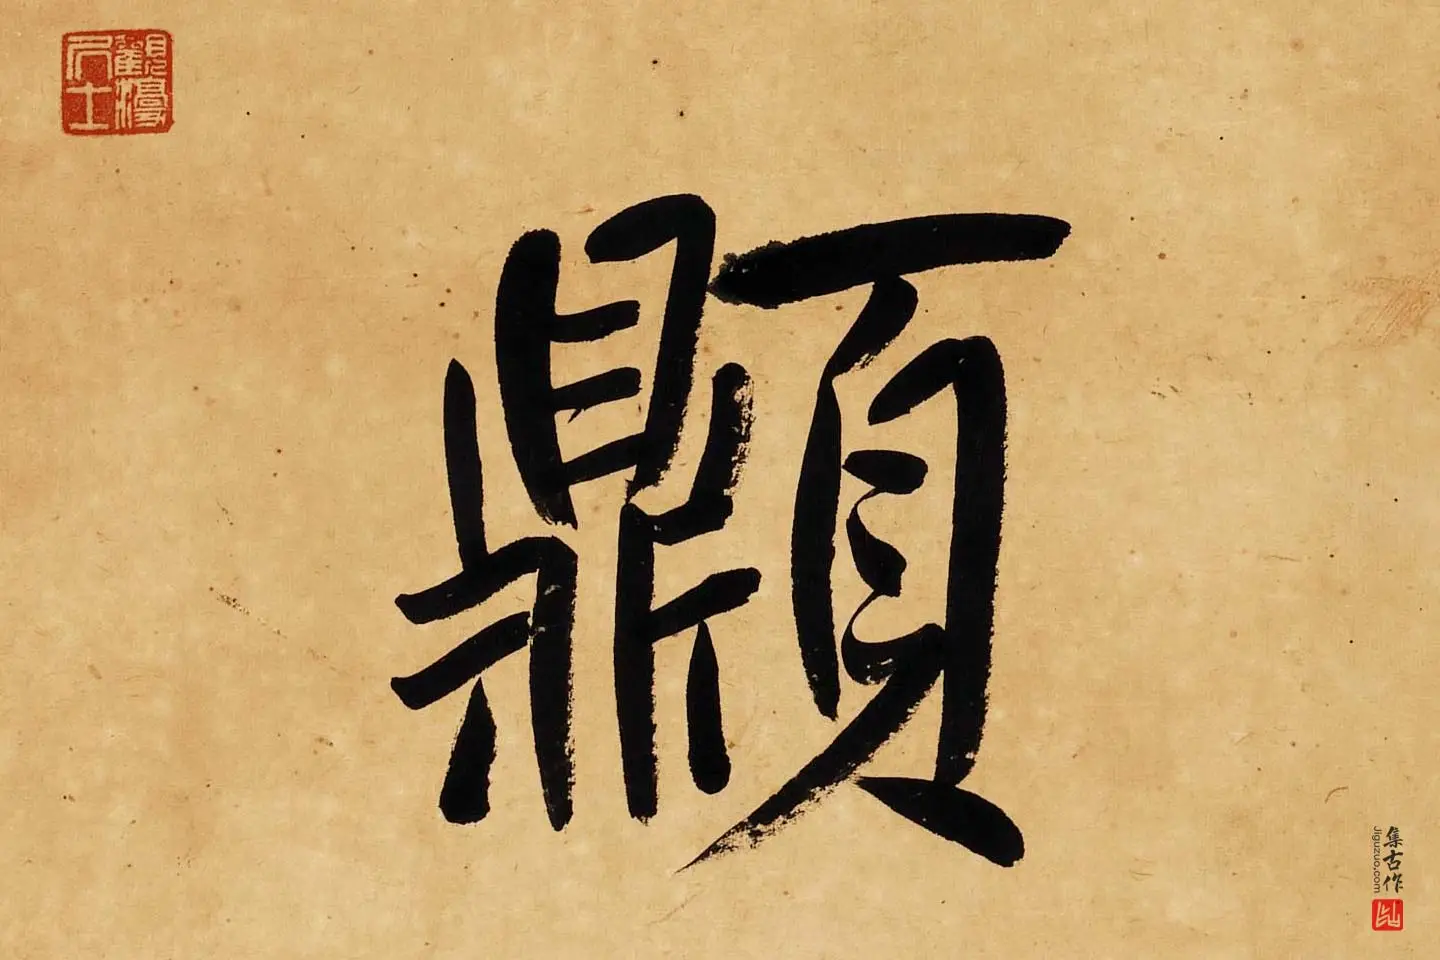 𩕢
集古作
Jiguzuo.com